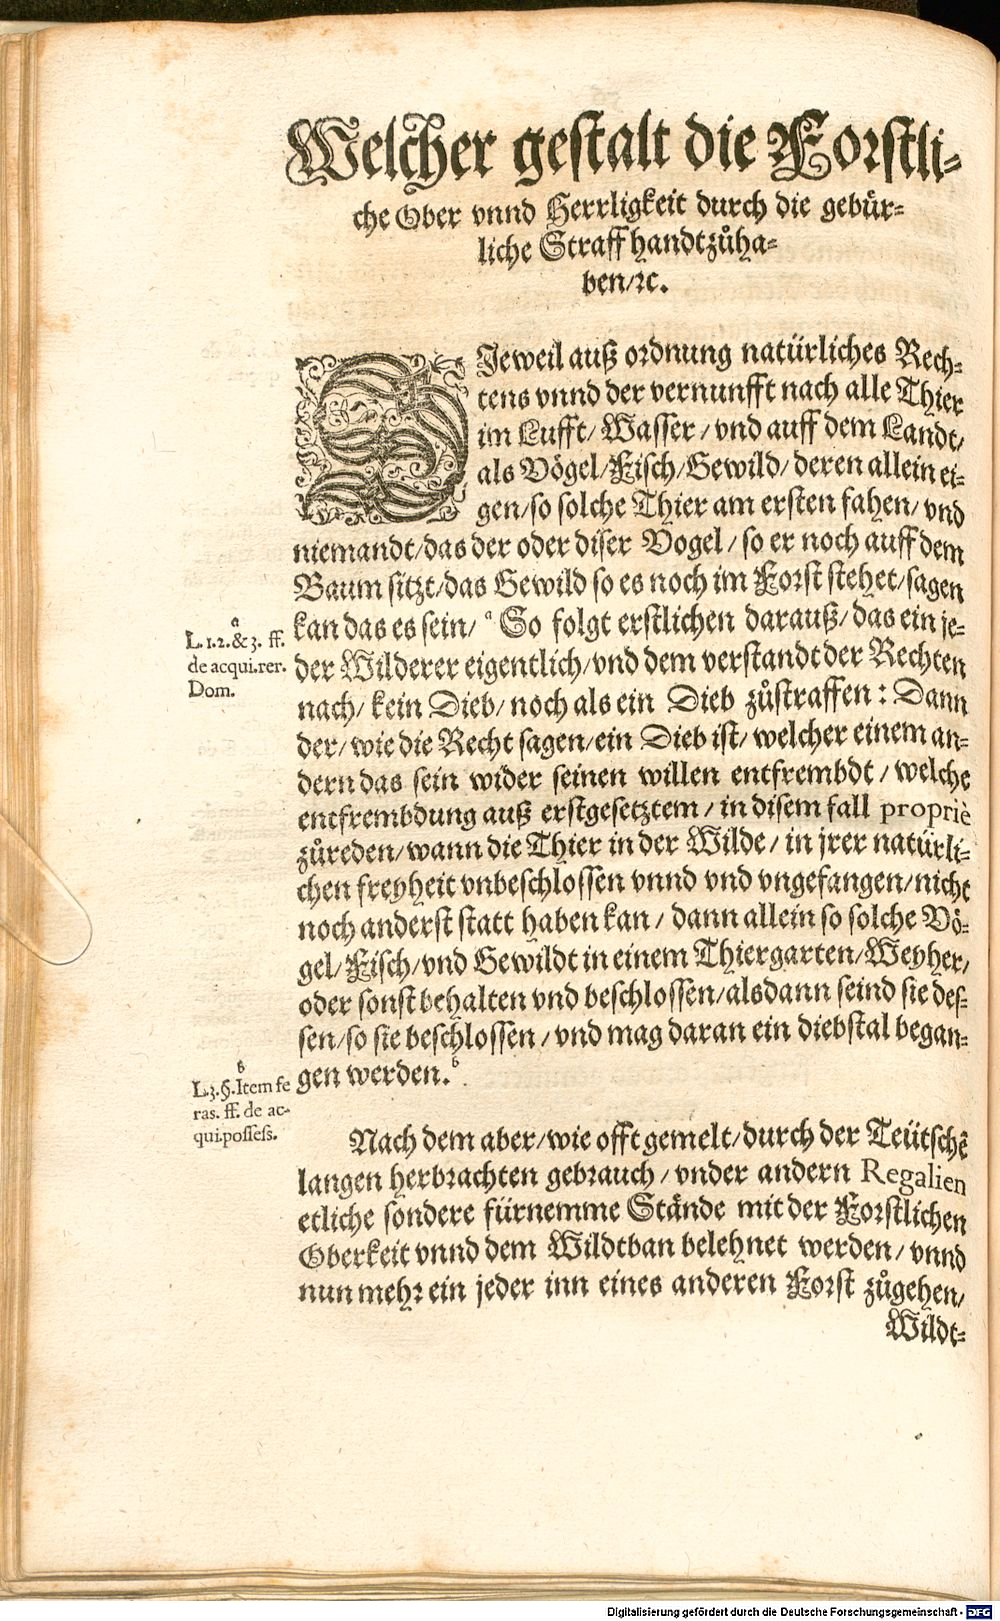 Welcher gestalt die Forstli-
che Ober vnnd Herrligkeit durch die gebür-
liche Straff handtzůha-
ben/ꝛc.
DJeweil auß ordnung natürliches Rech-
tens vnnd der vernunfft nach alle Thier
im Lufft/ Wasser/ vnd auff dem Landt/
als Vögel/ Fisch/ Gewild/ deren allein ei-
gen/ so solche Thier am ersten fahen/ vnd
niemandt/ das der oder diser Vogel/ so er noch auff dem
Baum sitzt/ das Gewild so es noch im Forst stehet/ sagen
kan das es sein/ ᵃ So folgt erstlichen darauß/ das ein je-
der Wilderer eigentlich/ vnd dem verstandt der Rechten
nach/ kein Dieb/ noch als ein Dieb zůstraffen: Dann
der/ wie die Recht sagen/ ein Dieb ist/ welcher einem an-
dern das sein wider seinen willen entfrembdt/ welche
entfrembdung auß erstgesetztem/ in disem fall propriè
zůreden/ wann die Thier in der Wilde/ in jrer natürli-
chen freyheit vnbeschlossen vnnd vnd vngefangen/ nicht
noch anderst statt haben kan/ dann allein so solche Vö-
gel/ Fisch/ vnd Gewildt in einem Thiergarten/ Weyher/
oder sonst behalten vnd beschlossen/ alsdann seind sie des-
sen/ so sie beschlossen/ vnd mag daran ein diebstal began-
gen werden.ᵇ
a
L. 1. 2. & 3. ff.
de acqui. rer.
Dom.
b
L. 3. §. Item fe
ras. ff. de ac-
qui. possess.
Nach dem aber/ wie offt gemelt/ durch der Teütschẽ
langen herbrachten gebrauch/ vnder andern Regalien
etliche sondere fürnemme Stände mit der Forstlichen
Oberkeit vnnd dem Wildtban belehnet werden/ vnnd
nun mehr ein jeder inn eines anderen Forst zůgehen/
Wildt-
Digitalisierung gefördert durch die Deutsche Forschungsgemeinschaft - DFG